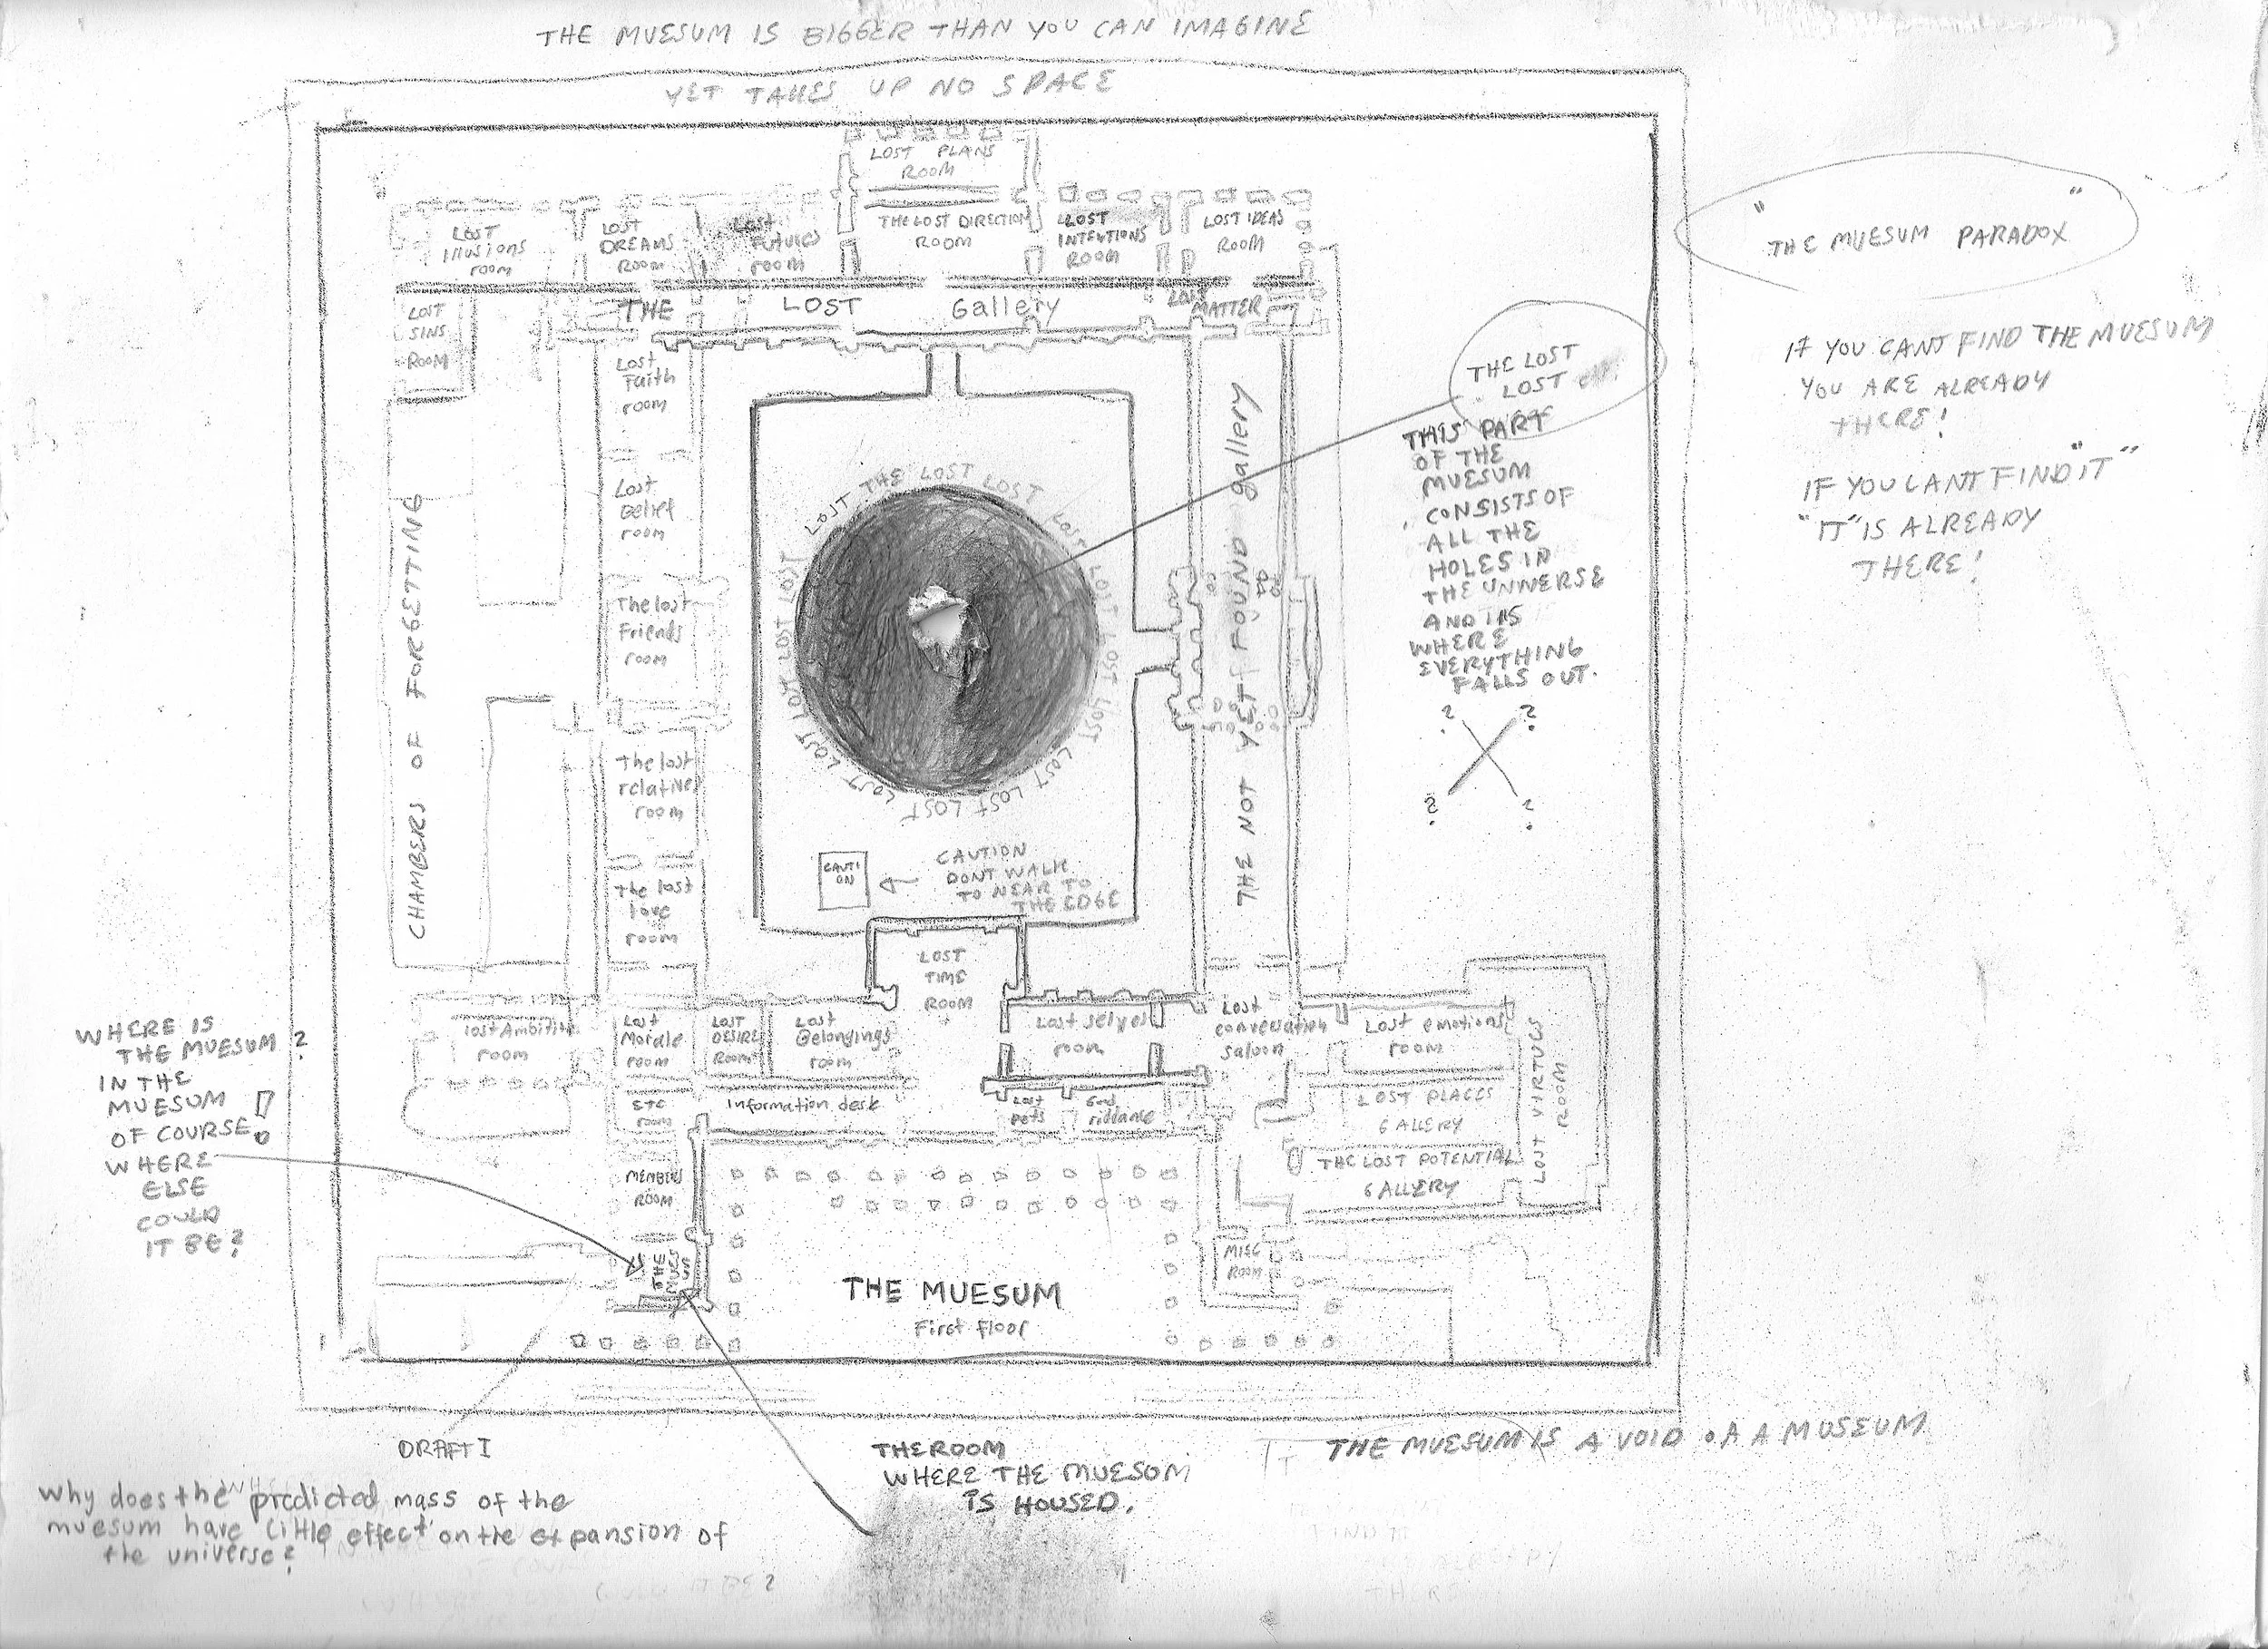 THE MUESUM IS BIGGER THAN YOU CAN IMAGINE
YET TAKES UP NO SPACE
LOST PLANS
ROOM
LOST
Illusions
room
LOST
DREAMS
ROOM
Lost
Futures
room
THE LOST DIRECTION
ROOM
LOST
INTENTIONS
ROOM
LOST IDEAS
ROOM
"THE MUESUM PARADOX"
IF YOU CANT FIND THE MUESUM
YOU ARE ALREADY
THERE!
IF YOU CANT FIND "IT"
"IT" IS ALREADY
THERE!
THE LOST Gallery
LOST
MATTER
LOST
SINS
ROOM
Lost
Faith
room
Lost
Belief
room
The lost
Friends
room
The lost
relatives
room
The lost
love
room
CHAMBERS OF FORGETTING
LOST THE LOST LOST LOST LOST LOST LOST LOST LOST LOST LOST LOST LOST LOST LOST LOST LOST
CAUTI
ON
CAUTION
DONT WALK
TO NEAR TO
THE EDGE
THE NOT YET FOUND gallery
THE LOST
LOST
THIS PART
OF THE
MUESUM
CONSISTS OF
ALL THE
HOLES IN
THE UNIVERSE
AND ITS
WHERE
EVERYTHING
FALLS OUT.
? ?
? ?
LOST
TIME
ROOM
lost Ambition
room
Lost
Morale
room
LOST
DESIRE
ROOM
Lost
Belongings
room
Lost selves
room
Lost
conversation
saloon
Lost emotions
room
LOST VIRTUES
ROOM
ETC
room
Information desk
Lost
pets
Good
riddance
LOST PLACES
GALLERY
THE LOST POTENTIAL
GALLERY
MEMBERS
ROOM
MISC
ROOM
THE
MUES
UM
THE MUESUM
First floor
WHERE IS
THE MUESUM ?
IN THE
MUESUM
OF COURSE!
WHERE
ELSE
COULD
IT BE?
DRAFT I
Why does the predicted mass of the
muesum have little effect on the expansion of
the universe?
THE ROOM
WHERE THE MUESUM
IS HOUSED.
THE MUESUM IS A VOID OF A MUSEUM